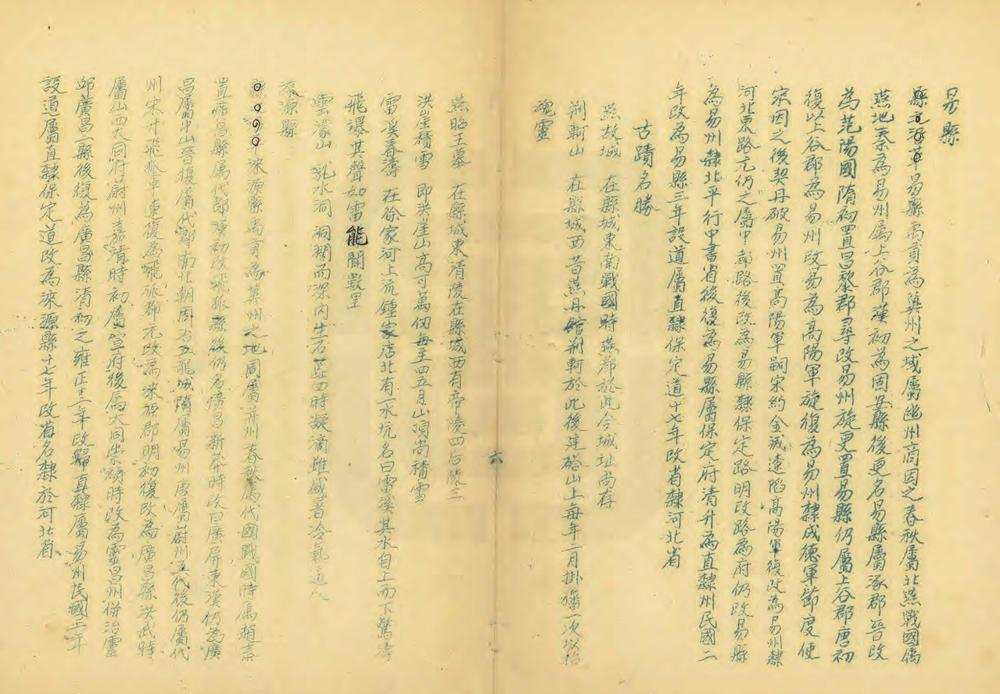 易縣
縣沿革 易縣禹貢為冀州之域屬幽州商因之春秋屬北燕戰國屬
燕地秦為易州屬上谷郡漢初為固安縣後更名易縣屬涿郡晉改
為范陽國隋初置昌黎郡尋改易州旋更置易縣仍屬上谷郡唐初
復以上谷郡為易州改易為高陽軍旋復為易州隸成德軍節度使
宋因之後契丹破易州置高陽軍嗣宋約金滅遼陷高陽軍復改為易州隸
河北東路元仍之屬中都路後改為易縣隸保定路明改路為府仍改易縣
為易州隸北平行中書省後復為易縣屬保定府清升為直隸州民國二
年改為易縣三年設道屬直隸保定道十七年改省隸河北省
古蹟名勝
燕故城 在縣城東南戰國時燕都於此今城址尚存
荊軻山 在縣城西昔燕丹餞荊軻於此後建塔山上每年二月掛旛一次以招
魂靈
六
燕昭王墓 在縣城東清陵在縣城西有帝陵四后陵三
洪崖積雪 即洪崖山高可萬仞每至四五月山澗尚積雪
雷溪春濤 在徐家河上流鍾家店北有一水坑名曰雷溪其水自上而下驚濤
飛瀑其聲如雷能聞數里
雲濛山 乳水洞 洞闊而深內生石 四時凝滴雖盛暑冷氣逼人
淶源縣
淶源縣禹貢為冀州之地周屬并州春秋屬代國戰國時屬趙秦
置 昌縣屬代郡漢初改 縣後仍為廣昌新莽時改曰廣屏東漢仍為廣
昌屬中山晉復屬代郡南北朝周 五龍城隋屬易州唐屬蔚州五代後仍屬代
州宋升飛 軍遼復為 郡元改為淶源郡明初復改為廣昌縣洪武時
屬山西大同府蔚州 清時初屬宣府後屬大同崇禎時改為靈昌州併治靈
邱廣昌縣後復為廣昌縣清初之雍正十二年改歸直隸屬易州民國二年
設道屬直隸保定道改為淶源縣十七年改省名隸於河北省